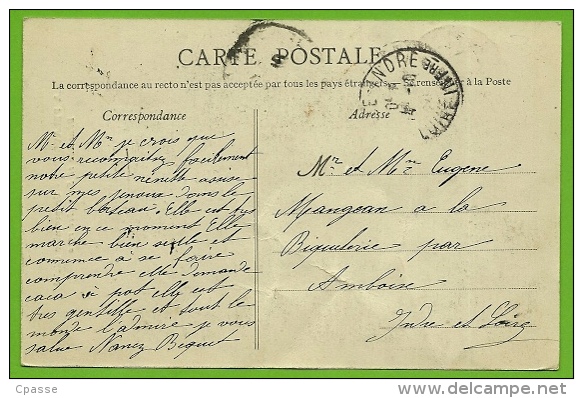 CARTE POSTALE
La correspondance au recto n'est pas acceptée par tous les pays étrangers. (Se renseigner à la Poste
Correspondance
Adresse
Mr et Mme je crois que
vous reconnaitrez facilement
notre petite nénette assise
sur mes genoux dans le
petit bateau. Elle est très
bien en ce moment Elle
marche bien seule et
commence à se faire
comprendre elle demande
caca si pot elle est
très gentille et tout le
monde l'admire je vous
salue Nancy Bequet
Mr et Mme Eugene
Mangean a la
Biguelerie par
Amboise
Indre et Loire
INDRE
LOIRE INFRE
Cpasse
www.delcampe.net